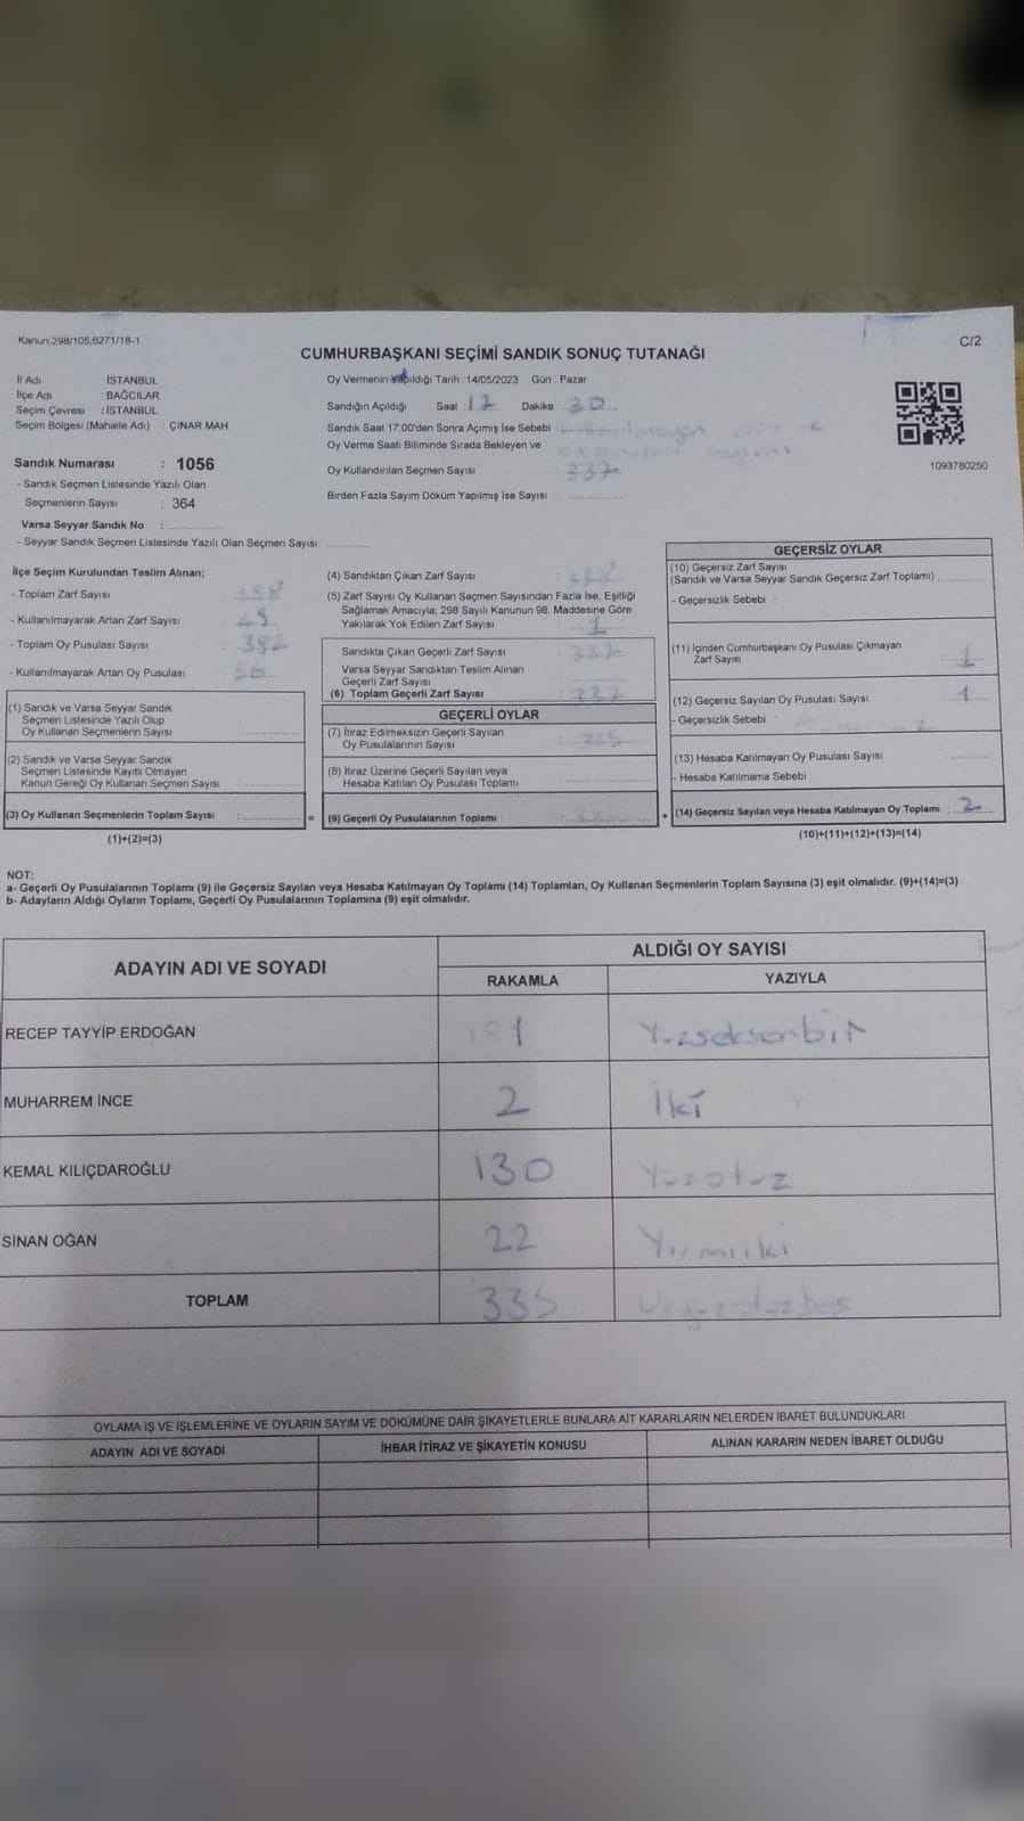 Kanun:298/105,6271/18-1
C/2
CUMHURBAŞKANI SEÇİMİ SANDIK SONUÇ TUTANAĞI
İl Adı : İSTANBUL
İlçe Adı : BAĞCILAR
Seçim Çevresi : İSTANBUL
Seçim Bölgesi (Mahalle Adı) ÇINAR MAH
Sandık Numarası : 1056
- Sandık Seçmen Listesinde Yazılı Olan
Seçmenlerin Sayısı : 364
Varsa Seyyar Sandık No :
- Seyyar Sandık Seçmen Listesinde Yazılı Olan Seçmen Sayısı:
Oy Vermenin Yapıldığı Tarih : 14/05/2023 Gün : Pazar
Sandığın Açıldığı Saat : 17 Dakika 30
Sandık Saat 17:00'den Sonra Açılmış İse Sebebi
Oy Verme Saati Bitiminde Sırada Bekleyen ve
Oy Kullandırılan Seçmen Sayısı 337
Birden Fazla Sayım Döküm Yapılmış İse Sayısı
1093780250
İlçe Seçim Kurulundan Teslim Alınan;
- Toplam Zarf Sayısı
- Kullanılmayarak Artan Zarf Sayısı
- Toplam Oy Pusulası Sayısı 392
- Kullanılmayarak Artan Oy Pusulası
(1) Sandık ve Varsa Seyyar Sandık
Seçmen Listesinde Yazılı Olup
Oy Kullanan Seçmenlerin Sayısı
(2) Sandık ve Varsa Seyyar Sandık
Seçmen Listesinde Kayıtlı Olmayan
Kanun Gereği Oy Kullanan Seçmen Sayısı
(3) Oy Kullanan Seçmenlerin Toplam Sayısı :
(1)+(2)=(3)
(4) Sandıktan Çıkan Zarf Sayısı 338
(5) Zarf Sayısı Oy Kullanan Seçmen Sayısından Fazla İse, Eşitliği
Sağlamak Amacıyla; 298 Sayılı Kanunun 98. Maddesine Göre
Yakılarak Yok Edilen Zarf Sayısı 1
Sandıkta Çıkan Geçerli Zarf Sayısı : 337
Varsa Seyyar Sandıktan Teslim Alınan
Geçerli Zarf Sayısı
(6) Toplam Geçerli Zarf Sayısı : 337
GEÇERLİ OYLAR
(7) İtiraz Edilmeksizin Geçerli Sayılan
Oy Pusulalarının Sayısı : 335
(8) İtiraz Üzerine Geçerli Sayılan veya
Hesaba Katılan Oy Pusulası Toplamı
(9) Geçerli Oy Pusulalarının Toplamı
GEÇERSİZ OYLAR
(10) Geçersiz Zarf Sayısı
(Sandık ve Varsa Seyyar Sandık Geçersiz Zarf Toplamı)
- Geçersizlik Sebebi
(11) İçinden Cumhurbaşkanı Oy Pusulası Çıkmayan
Zarf Sayısı 1
(12) Geçersiz Sayılan Oy Pusulası Sayısı 1
- Geçersizlik Sebebi
(13) Hesaba Katılmayan Oy Pusulası Sayısı
- Hesaba Katılmama Sebebi
(14) Geçersiz Sayılan veya Hesaba Katılmayan Oy Toplamı 2
(10)+(11)+(12)+(13)=(14)
NOT:
a- Geçerli Oy Pusulalarının Toplamı (9) ile Geçersiz Sayılan veya Hesaba Katılmayan Oy Toplamı (14) Toplamları, Oy Kullanan Seçmenlerin Toplam Sayısına (3) eşit olmalıdır. (9)+(14)=(3)
b- Adayların Aldığı Oyların Toplamı, Geçerli Oy Pusulalarının Toplamına (9) eşit olmalıdır.
ADAYIN ADI VE SOYADI
ALDIĞI OY SAYISI
RAKAMLA YAZIYLA
RECEP TAYYİP ERDOĞAN 181 Yüzseksenbir
MUHARREM İNCE 2 İki
KEMAL KILIÇDAROĞLU 130 Yüzotuz
SİNAN OĞAN 22 Yirmiiki
TOPLAM 335 Üçyüzotuzbeş
OYLAMA İŞ VE İŞLEMLERİNE VE OYLARIN SAYIM VE DÖKÜMÜNE DAİR ŞİKAYETLERLE BUNLARA AİT KARARLARIN NELERDEN İBARET BULUNDUKLARI
ADAYIN ADI VE SOYADI İHBAR İTİRAZ VE ŞİKAYETİN KONUSU ALINAN KARARIN NEDEN İBARET OLDUĞU